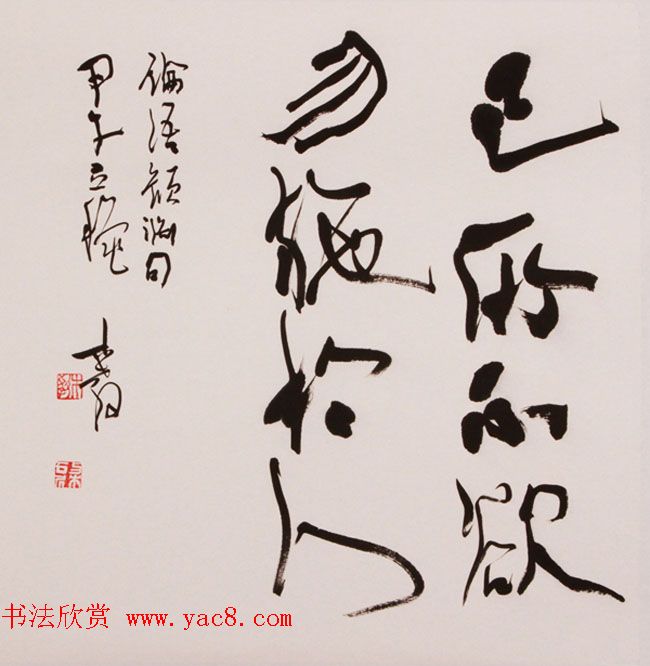 己所不欲
勿施於人
論語顏淵句
甲午立穐
书法欣赏 www.yac8.com